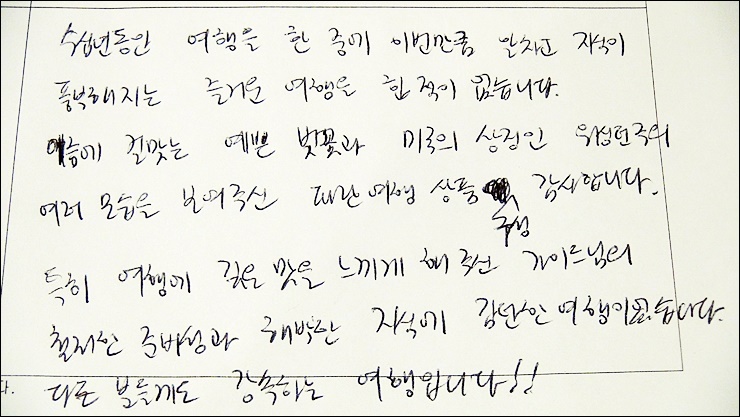 수십년동안 여행을 한 중에 이번만큼 알차고 지식이
풍부해지는 즐거운 여행을 한 적이 없습니다.
이름에 걸맞는 예쁜 벚꽃과 미국의 상징인 워싱턴주의
여러 모습을 보여주신 대한여행 상품 구성 감사합니다.
특히 여행에 깊은 맛을 느끼게 해 주신 가이드님의
철저한 준비성과 해박한 지식에 감탄한 여행이었습니다.
다. 다른 분들께도 강추하는 여행입니다!!